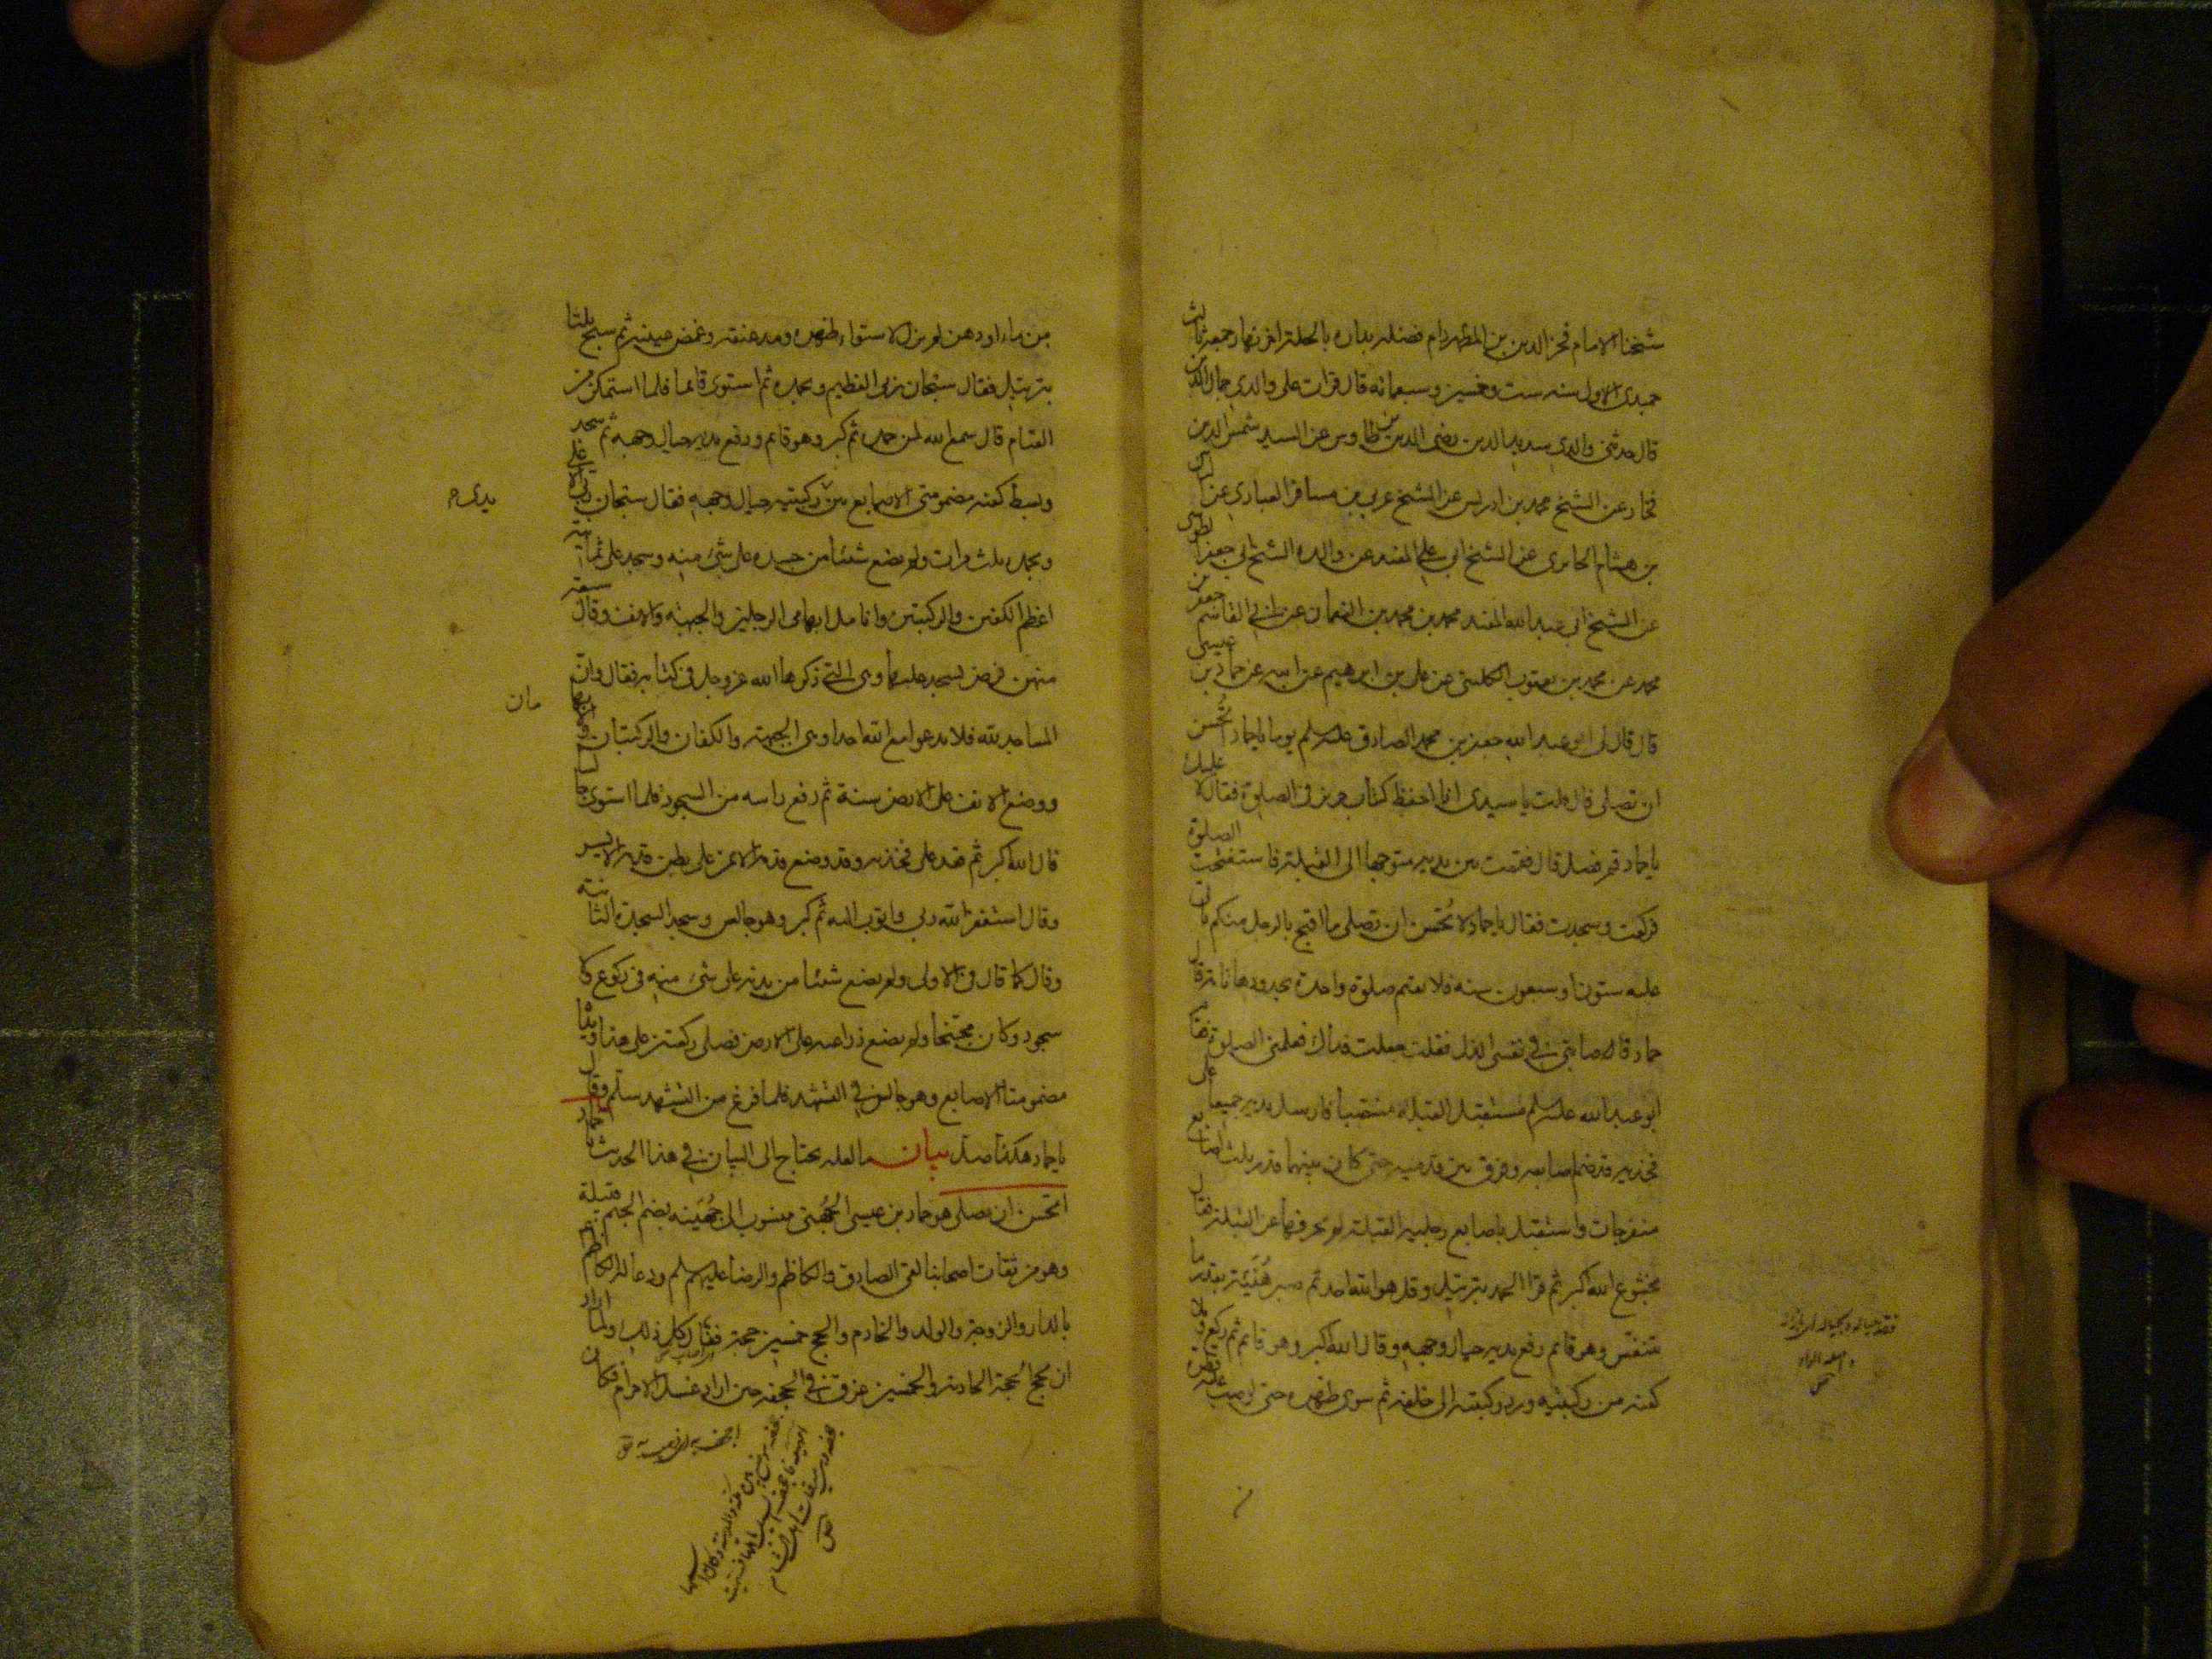 شيخنا الامام فخر الدين بن المطهر دام فضله بداره بالحلة اخر نهار جمعة ثالث
جميدى الاول سنه ست وخمسين وسبعمائه قال قرات على والدي جمال الدين
قال حدثنى والدي سديد الدين رضى الدين بن طاوس عن السيد شمس الدين
فخار عن الشيخ محمد بن ادريس عن الشيخ عربي بن مسافر العبادي عن الياس
بن هشام الحايرى عن الشيخ ابي علي المفيد عن والده الشيخ ابي جعفر الطوسى
عن الشيخ ابي عبد الله المفيد محمد بن محمد بن النعمان عن ابي القاسم جعفر بن
محمد عن محمد بن يعقوب الكلينى عن على بن ابرهيم عن ابيه عن حماد بن عيسى
قال قال لى ابو عبد الله جعفر بن محمد الصادق عليه سلم يوما يا حماد اتحسن
ان تصلى قال قلت يا سيدى انا احفظ كتاب حريز فى الصلوة فقال لا عليك
يا حماد قم فصل قال فقمت بين يديه متوجها الى القبلة فاستفتحت الصلوة
فركعت وسجدت فقال يا حماد لا تحسن ان تصلى ما اقبح بالرجل منكم ياتى
عليه ستون او سبعون سنه فلا يقيم صلوة واحدة بحدودها تامة قال
حماد فاصابنى فى نفسى الذل فقلت جعلت فداك فعلمنى الصلوة فقام
ابو عبد الله عليه سلم مستقبل القبلة منتصبا فارسل يديه جميعا على
فخذيه قد ضم اصابعه وفرق بين قدميه حتى كان بينهما قدر ثلث اصابع
منفرجات واستقبل باصابع رجليه القبلة لم يحرفهما عن القبلة فقال
بخشوع الله اكبر ثم قرا الحمد بترتيل وقل هو الله احد ثم صبر هنيئة بقدر ما
تنفس وهو قائم رفع يديه حيال وجهه وقال الله اكبر وهو قائم ثم ركع وملا
كفيه من ركبتيه ورد ركبتيه الى خلفه ثم سوى ظهره حتى لو صب عليه قطرة
من ماء او دهن لم يزل لاستواء ظهره ومد عنقه وغمض عينيه ثم سبح ثلثا
بترتيل فقال سبحان ربى العظيم وبحمده ثم استوى قائما فلما استمكن من
القيام قال سمع الله لمن حمده ثم كبر وهو قائم ورفع يديه حيال وجهه ثم سجد
وبسط كفيه مضمومتى الاصابع بين ركبتيه حيال وجهه فقال سبحان ربى الاعلى
يدى
وبحمده ثلث مرات ولم يضع شيئا من جسده على شئ منه وسجد على ثمانية
اعظم الكفين والركبتين وانامل ابهامى الرجلين والجبهة والانف وقال سبعة
منهن فرض يسجد عليها وهى التى ذكرها الله عز وجل فى كتابه فقال وان
المساجد لله فلا تدعوا مع الله احدا وهى الجبهة والكفان والركبتان والابهامان
ووضع الانف على الارض سنة ثم رفع راسه من السجود فلما استوى جالسا
قال الله اكبر ثم قعد على فخذيه وقد وضع قدمه الايمن على بطن قدمه الايسر
وقال استغفر الله ربى واتوب اليه ثم كبر وهو جالس وسجد السجدة الثانية
وقال كما قال فى الاولى ولم يضع شيئا من بدنه على شئ منه فى ركوع ولا
سجود وكان مجتنحا ولم يضع ذراعيه على الارض فصلى ركعتين على هذا ويداه
مضمومتا الاصابع وهو جالس فى التشهد فلما فرغ من التشهد سلم وقال
يا حماد هكذا صل بيان ما لعله يحتاج الى البيان فى هذا الحديث يا حماد
اتحسن ان تصلى هو حماد بن عيسى الجهنى منسوب الى جهينه بضم الجيم قبيلة
وهو من ثقات اصحابنا لقى الصادق والكاظم والرضا عليهم سلم ودعا له الكاظم
بالدار والزوجة والولد والخادم والحج خمسين حجة فنال كل ذلك ولما اراد
ان يحج الحجة الحادية والخمسين غرق فى الجحفة حين اراد غسل الاحرام فكان